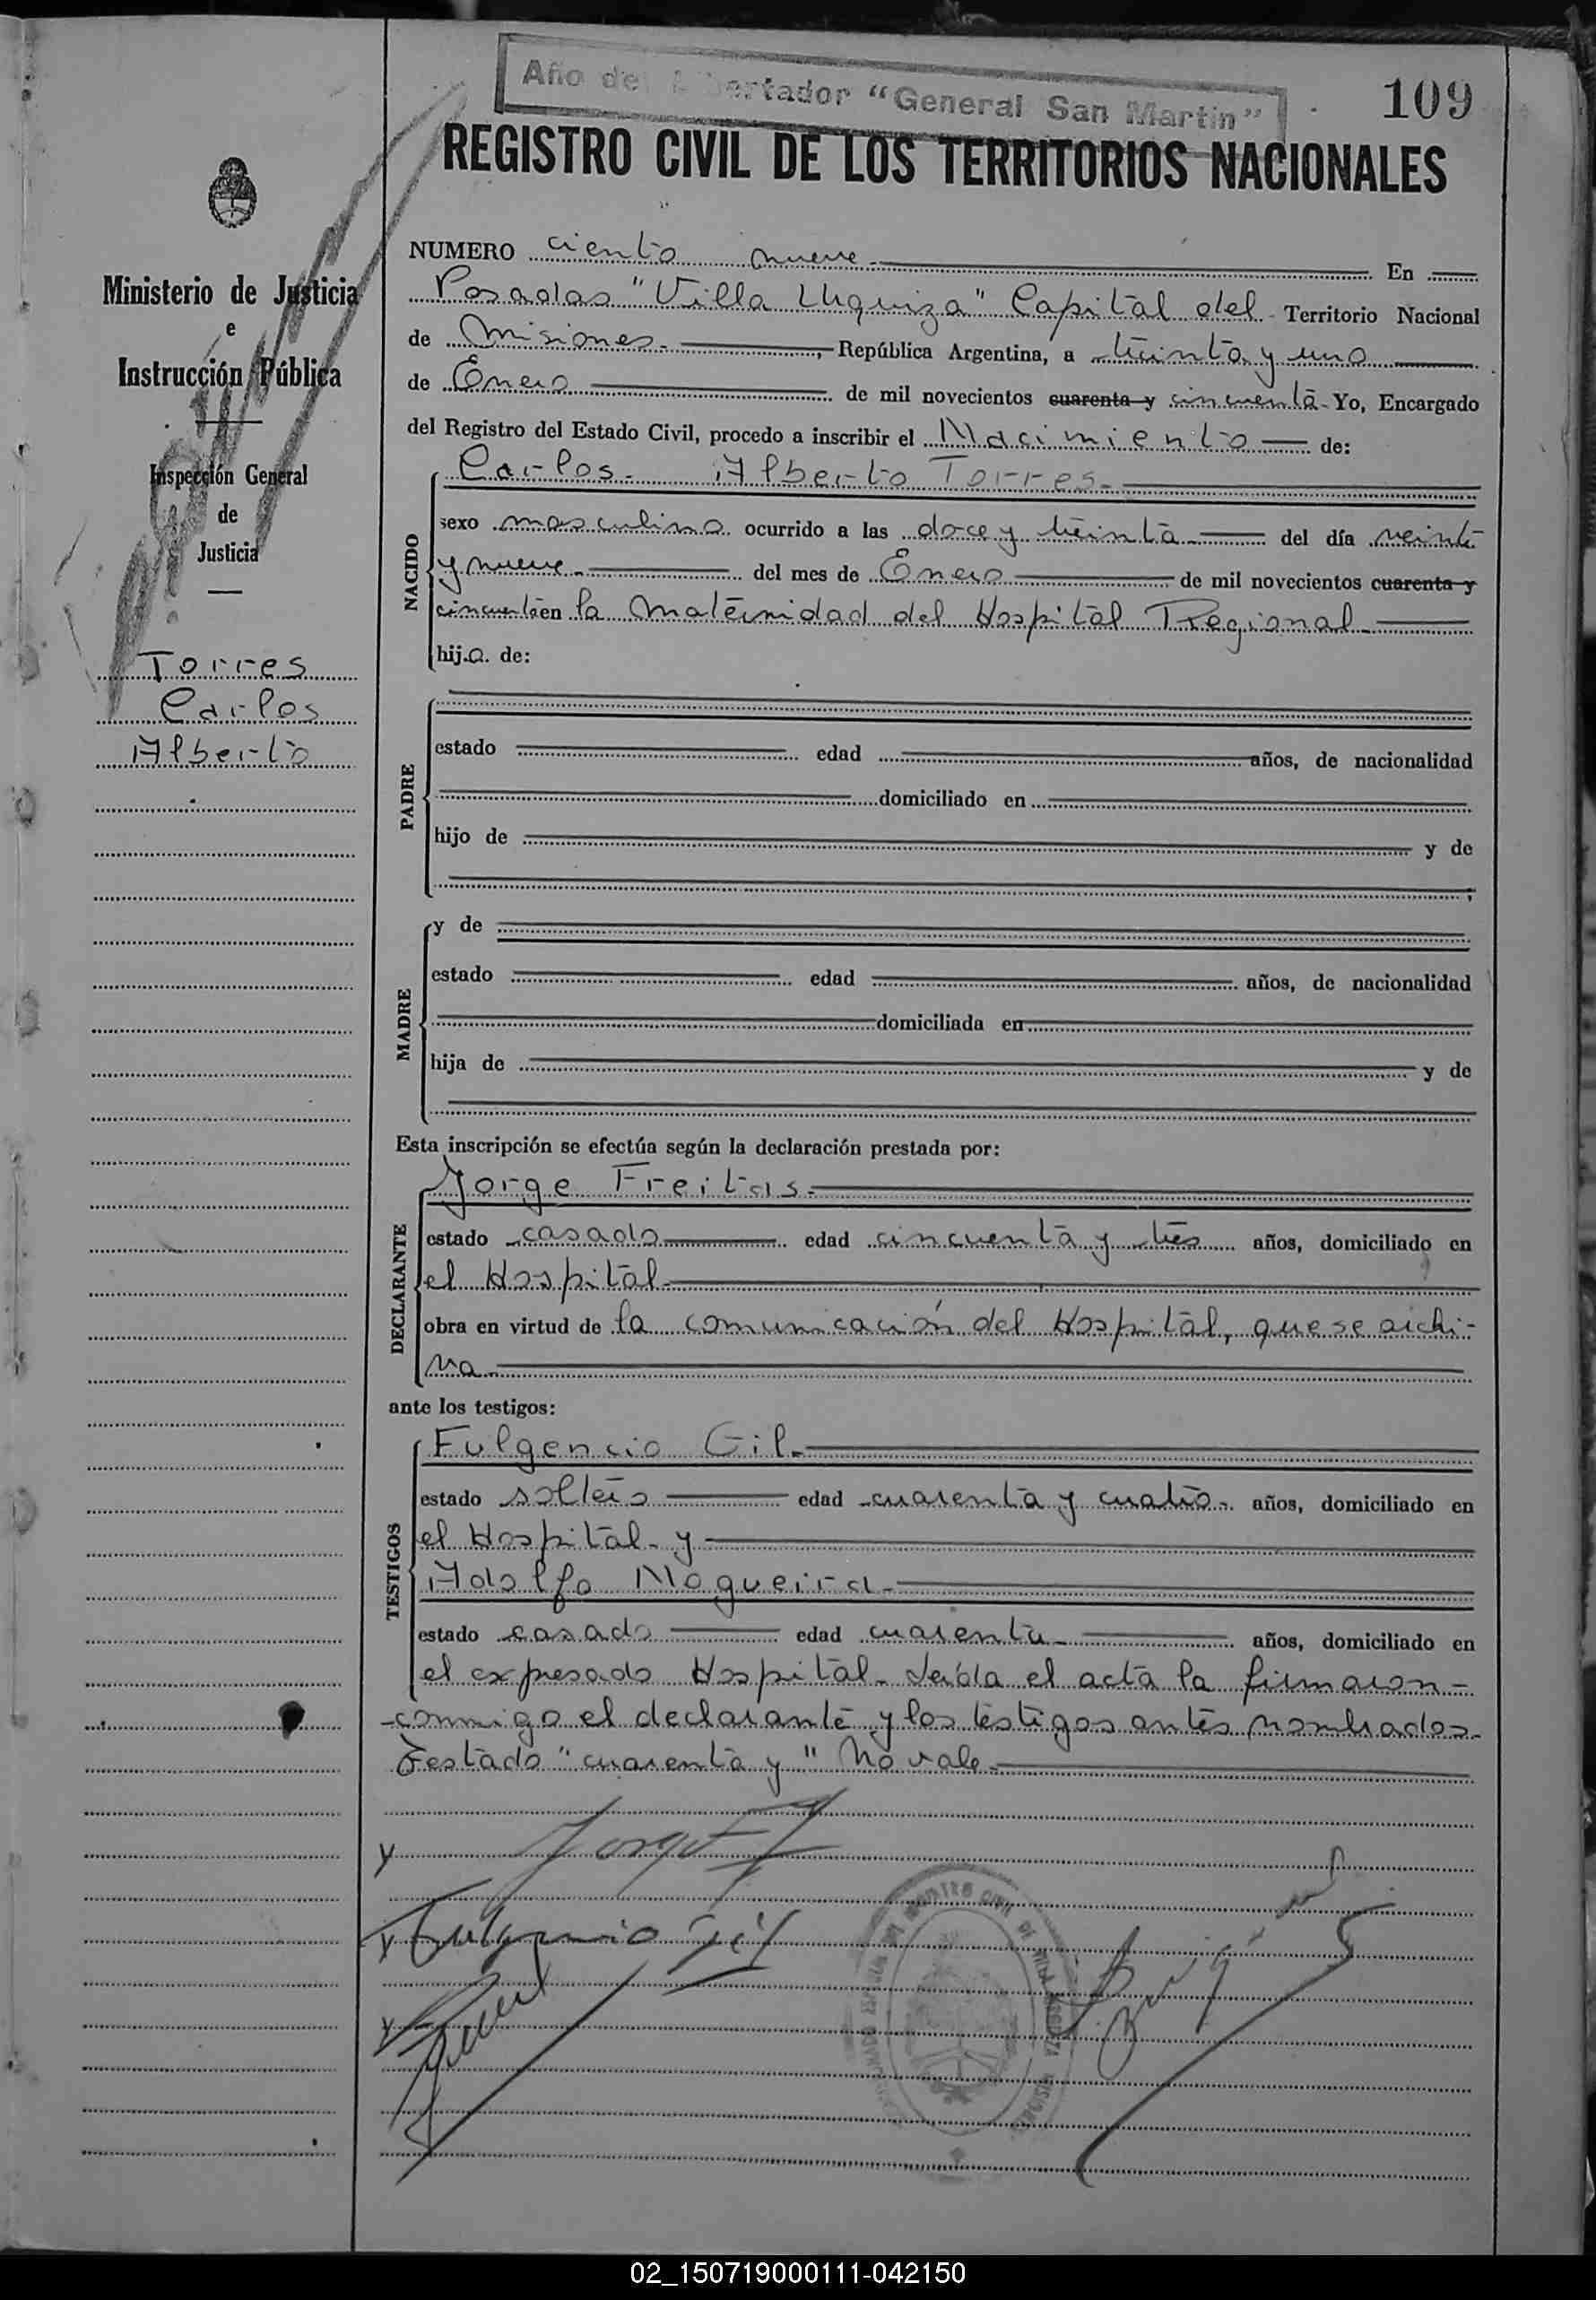 Año del Libertador "General San Martin"
109
REGISTRO CIVIL DE LOS TERRITORIOS NACIONALES
Ministerio de Justicia
e
Instrucción Pública
Inspección General
de
Justicia
Torres
Carlos
Alberto
NUMERO ciento nueve. En
Posadas "Villa Urquiza" Capital del Territorio Nacional
de Misiones, República Argentina, a treinta y uno
de Enero de mil novecientos cuarenta y cincuenta Yo, Encargado
del Registro del Estado Civil, procedo a inscribir el Nacimiento de:
NACIDO
Carlos Alberto Torres
sexo masculino ocurrido a las doce y treinta del día veinte
y nueve del mes de Enero de mil novecientos cuarenta y
cincuenta en la Maternidad del Hospital Regional
hijo. de:
PADRE
estado edad años, de nacionalidad
domiciliado en
hijo de y de
;
MADRE
y de
estado edad años, de nacionalidad
domiciliada en
hija de y de
Esta inscripción se efectúa según la declaración prestada por:
DECLARANTE
Jorge Freitas
estado casado edad cincuenta y tres años, domiciliado en
el Hospital
obra en virtud de la comunicación del Hospital, que se archi-
va
ante los testigos:
TESTIGOS
Fulgencio Gil
estado soltero edad cuarenta y cuatro años, domiciliado en
el Hospital y
Adolfo Nogueira
estado casado edad cuarenta años, domiciliado en
el expresado Hospital. Leída el acta la firmaron
conmigo el declarante y los testigos antes nombrados.
Testado "cuarenta y" No vale
y Jorge F
y Fulgencio Gil
y
02_150719000111-042150